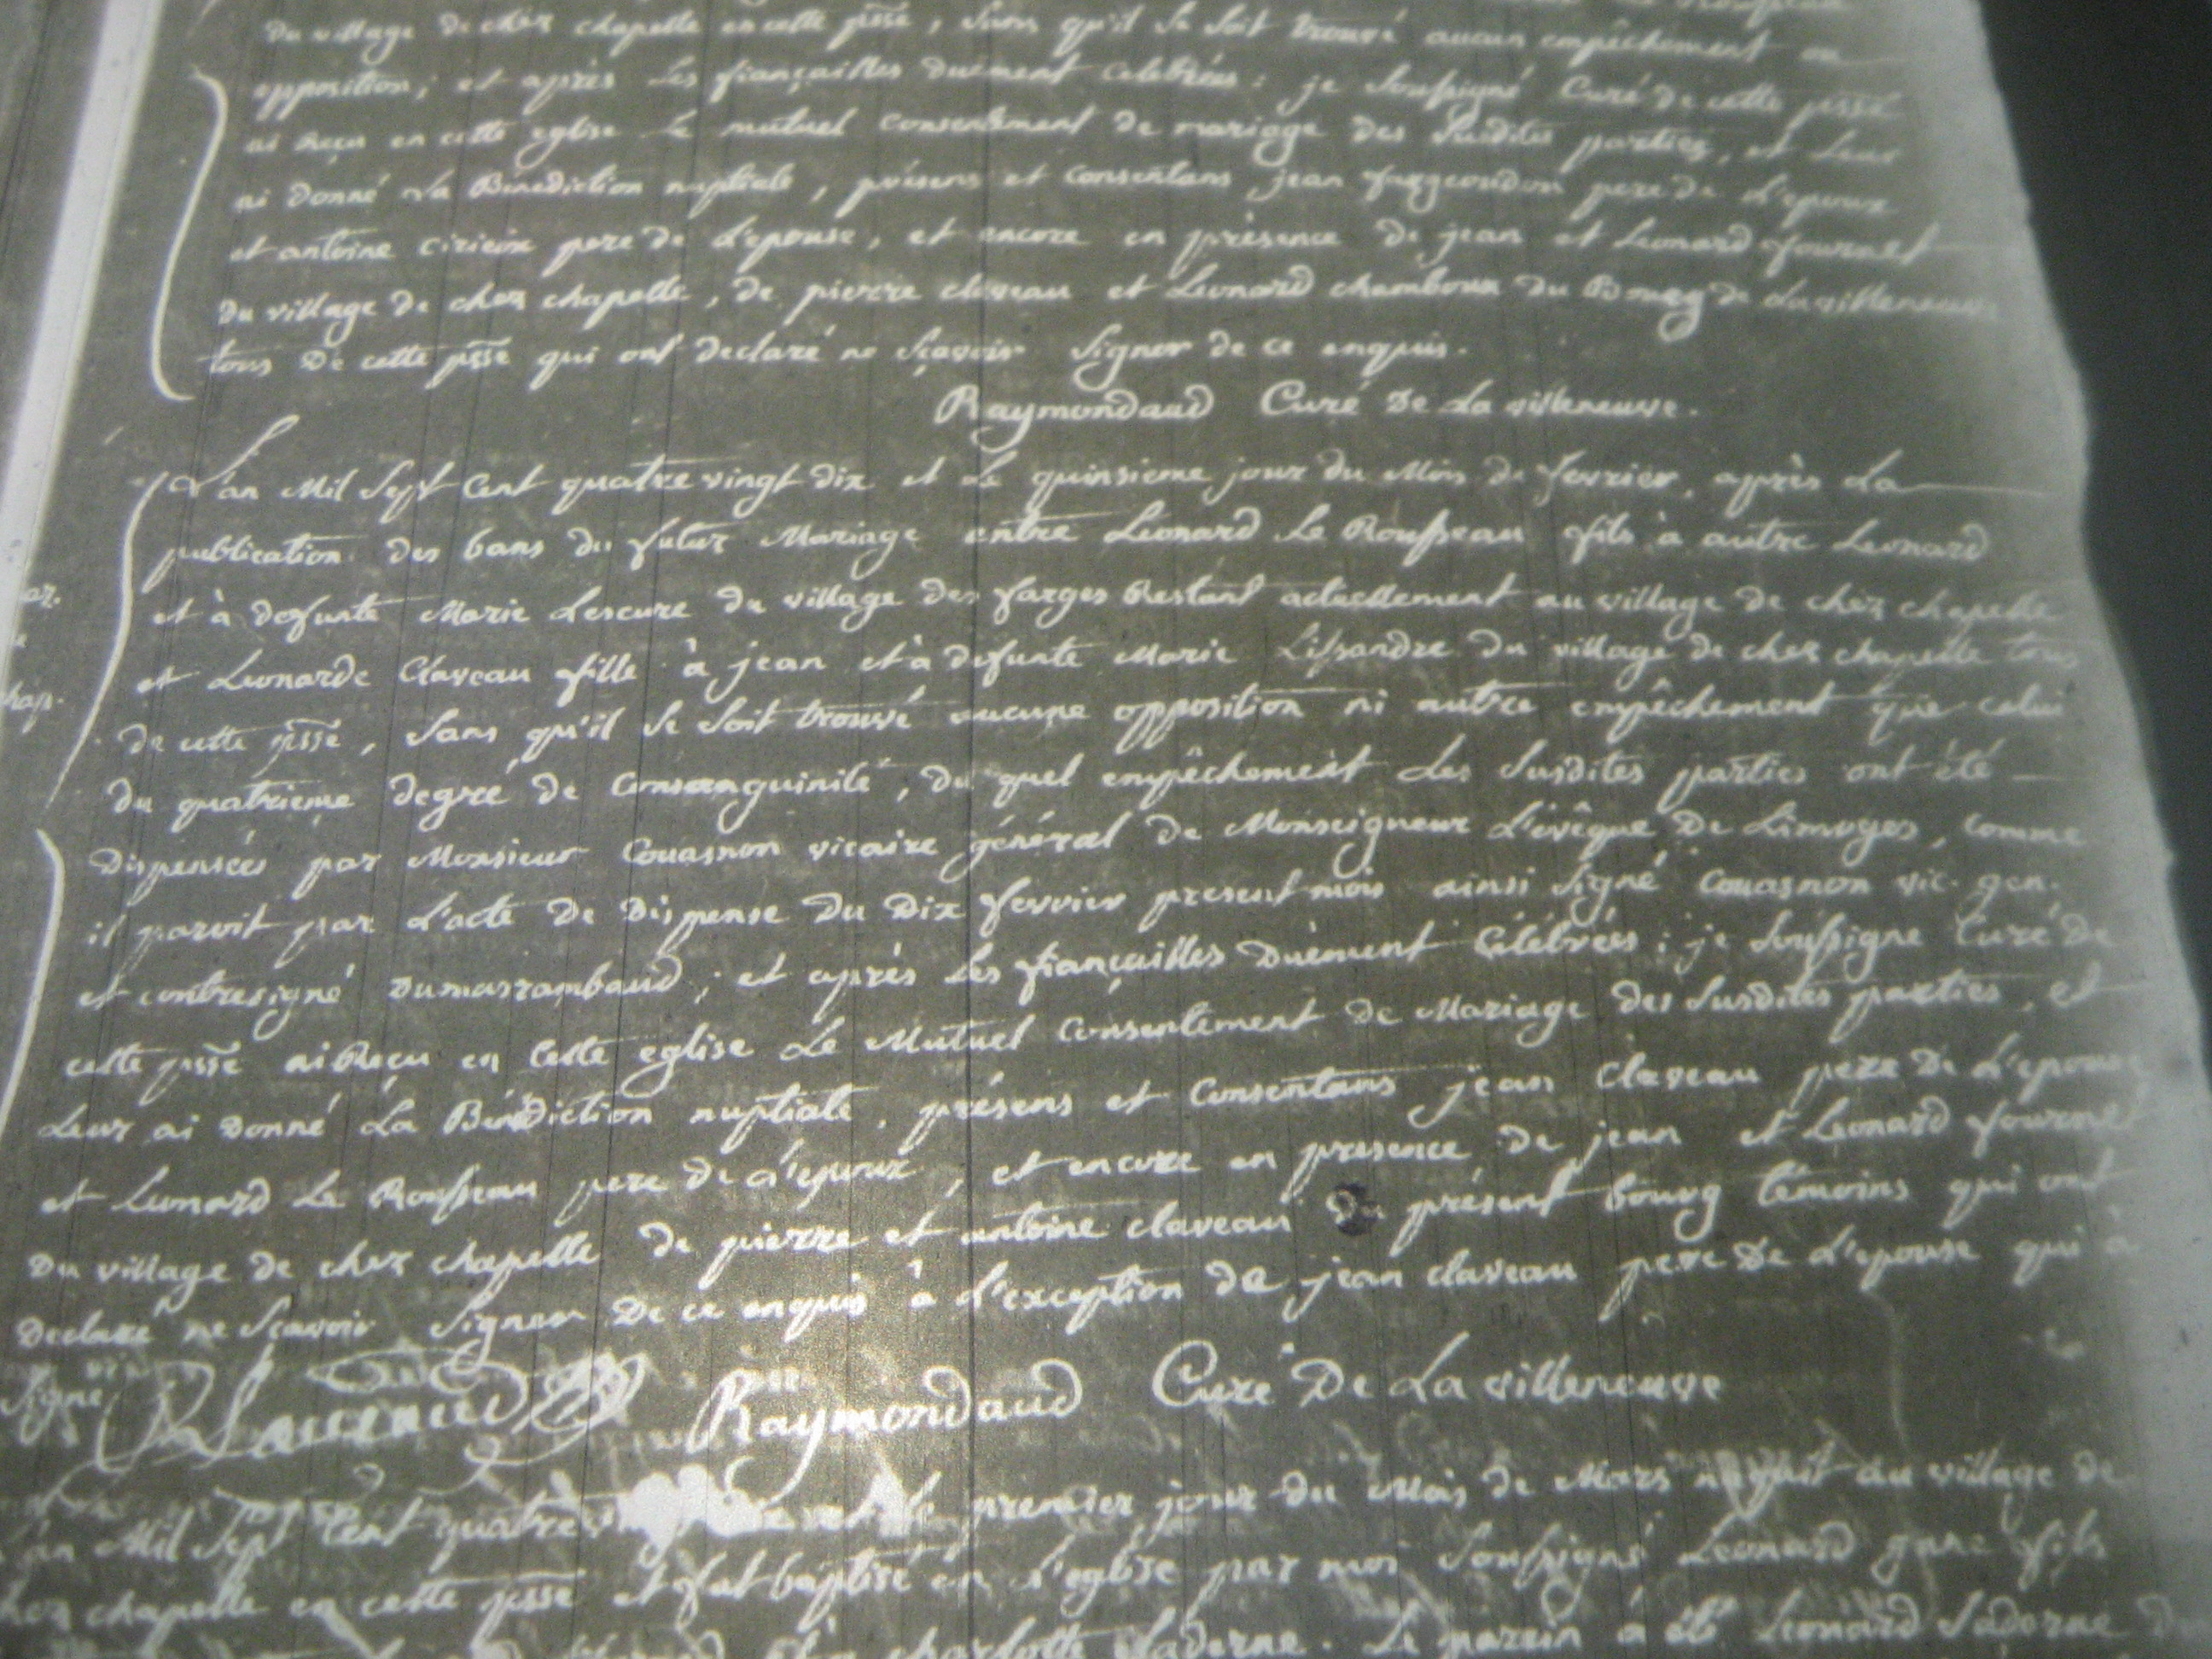 du village de chez chapelle en cette psse, sans qu'il se soit trouvé aucun empêchement ou
opposition; et après les fiançailles duement celebrées: je soussigné Curé de cette psse
ai Reçu en cette eglise le mutuel consentement de mariage des susdites parties, et leur
ai donné la Bénediction nuptiale, présens et consentans jean pere de L'epoux
et antoine cirieix pere de L'epouse, et encore en présence de jean et Leonard fournet
du village de chez chapelle, de pierre claveau et Leonard chamboux du Bourg de Lavilleneuve
tous de cette psse qui ont declaré ne sçavoir signer de ce enquis.
Raymondaud Curé De La villeneuve.
L'an Mil Sept Cent quatre vingt dix et le quinsieme jour du Mois de fevrier, après La
publication des bans du futur Mariage entre Leonard Le Rousseau fils à autre Leonard
et à defunte Marie Lescure du village des farges Restant actuellement au village de chez chapelle
et Leonarde Claveau fille à jean et à defunte Marie Lissandre du village de chez chapelle tous
de cette psse, sans qu'il se soit trouvé aucune opposition ni autre empêchement que celui
du quatrieme degré de Consanguinité, du quel empêchement Les susdites parties ont été
dispensées par Monsieur Couasnon vicaire général de Monseigneur L'evêque De Limoges, comme
il paroit par L'acte De Dispense Du Dix fevrier present mois ainsi signé Couasnon vic. gen.
et contresigné Dumasrambaud; et après Les fiançailles Duement Célébrées; je soussigne Curé De
cette psse ai Reçu en Cette eglise Le Mutuel Consentement De Mariage Des susdites parties, et
Leur ai Donné La Bénédiction nuptiale, présens et Consentans jean Claveau pere De L'epouse
et Leonard Le Rousseau pere De L'epoux, et encore en presence De jean et Leonard fournet
Du village De chez chapelle De pierre et antoine claveau Du présent bourg témoins qui ont
Declaré ne Sçavoir signer De ce enquis à L'exception De jean claveau pere De L'epouse qui a
signé Raymondaud Curé De La villeneuve
Mil Sept Cent quatre et le premier jour du Mois de Mars naquit au village de
chez chapelle en cette psse et fut baptisé en L'eglise par moi Soussigné Leonard fils
charlotte Laderne. Le parein a été Leonard